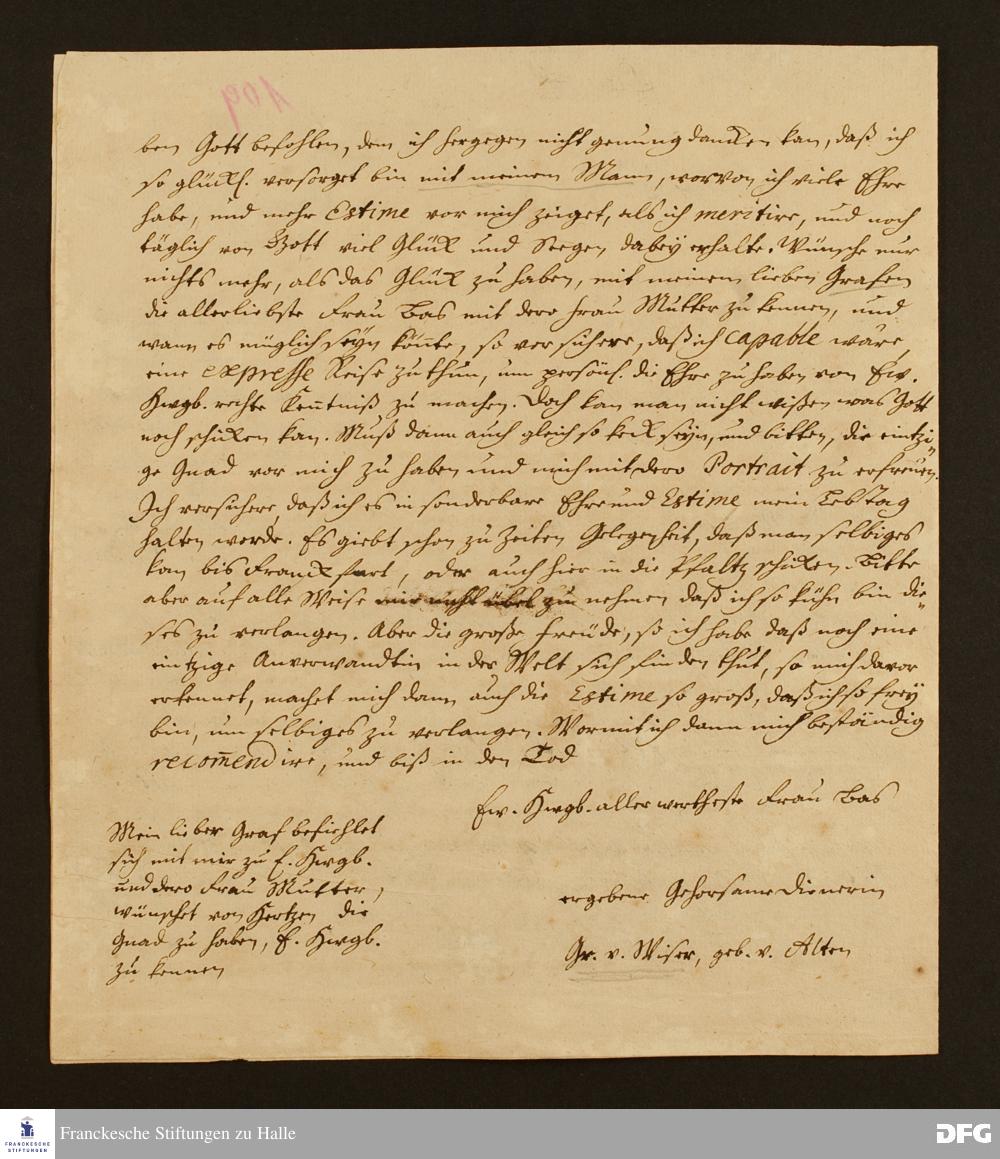 109
ben Gott befohlen, dem ich hergegen nicht genung dancken kan, daß ich
so glückl. versorget bin mit meinem Mann, worvon ich viele Ehre
habe, und mehr Estime vor mich zeiget, als ich meritire, und noch
täglich von Gott viel Glück und Seegen dabey erhalte. Wünsche nur
nichts mehr, als das Glück zu haben, mit meinem lieben Grafen
die allerliebste Frau Bas mit dero Frau Mutter zu kennen, und
wann es müglich seyn könnte, so versichere, daß ich capable wäre,
eine expresse Reise zu thun, um persönl. die Ehre zu haben von Ew.
Hwgb. rechte Kentniß zu machen. Doch kan man nicht wißen was Gott
noch schicken kan. Muß dann auch gleich so keck seyn, und bitten, die eintzi-
ge Gnad vor mich zu haben und mich mit dero Portrait zu erfreuen.
Ich versichere, daß ich es in sonderbare Ehre und Estime mein Lebtag
halten werde. Es giebt schon zu Zeiten Gelegenheit, daß man selbiges
kan bis Franckfurt, oder auch hier in die Pfaltz schicken. Bitte
aber auf alle Weise mir nicht übel zu nehmen daß ich so kühn bin die-
ses zu verlangen. Aber die große Freude, so ich habe daß noch eine
eintzige Anverwandtin in der Welt sich finden thut, so mich davor
erkennet, machet mich dann auch die Estime so groß, daß ich so frey
bin, um selbiges zu verlangen. Wormit ich dann mich beständig
recom̄endire, und biß in den Tod
Ew. Hwgb. aller wertheste Frau Bas
Mein lieber Graf befiehlet
sich mit mir zu E. Hwgb.
und dero Frau Mutter,
wünschet von Hertzen die
Gnad zu haben, E. Hwgb.
zu kennen
ergebene Gehorsame Dienerin
Gr. v. Wiser, geb. v. Alten
FRANCKESCHE
STIFTUNGEN
Franckesche Stiftungen zu Halle
DFG